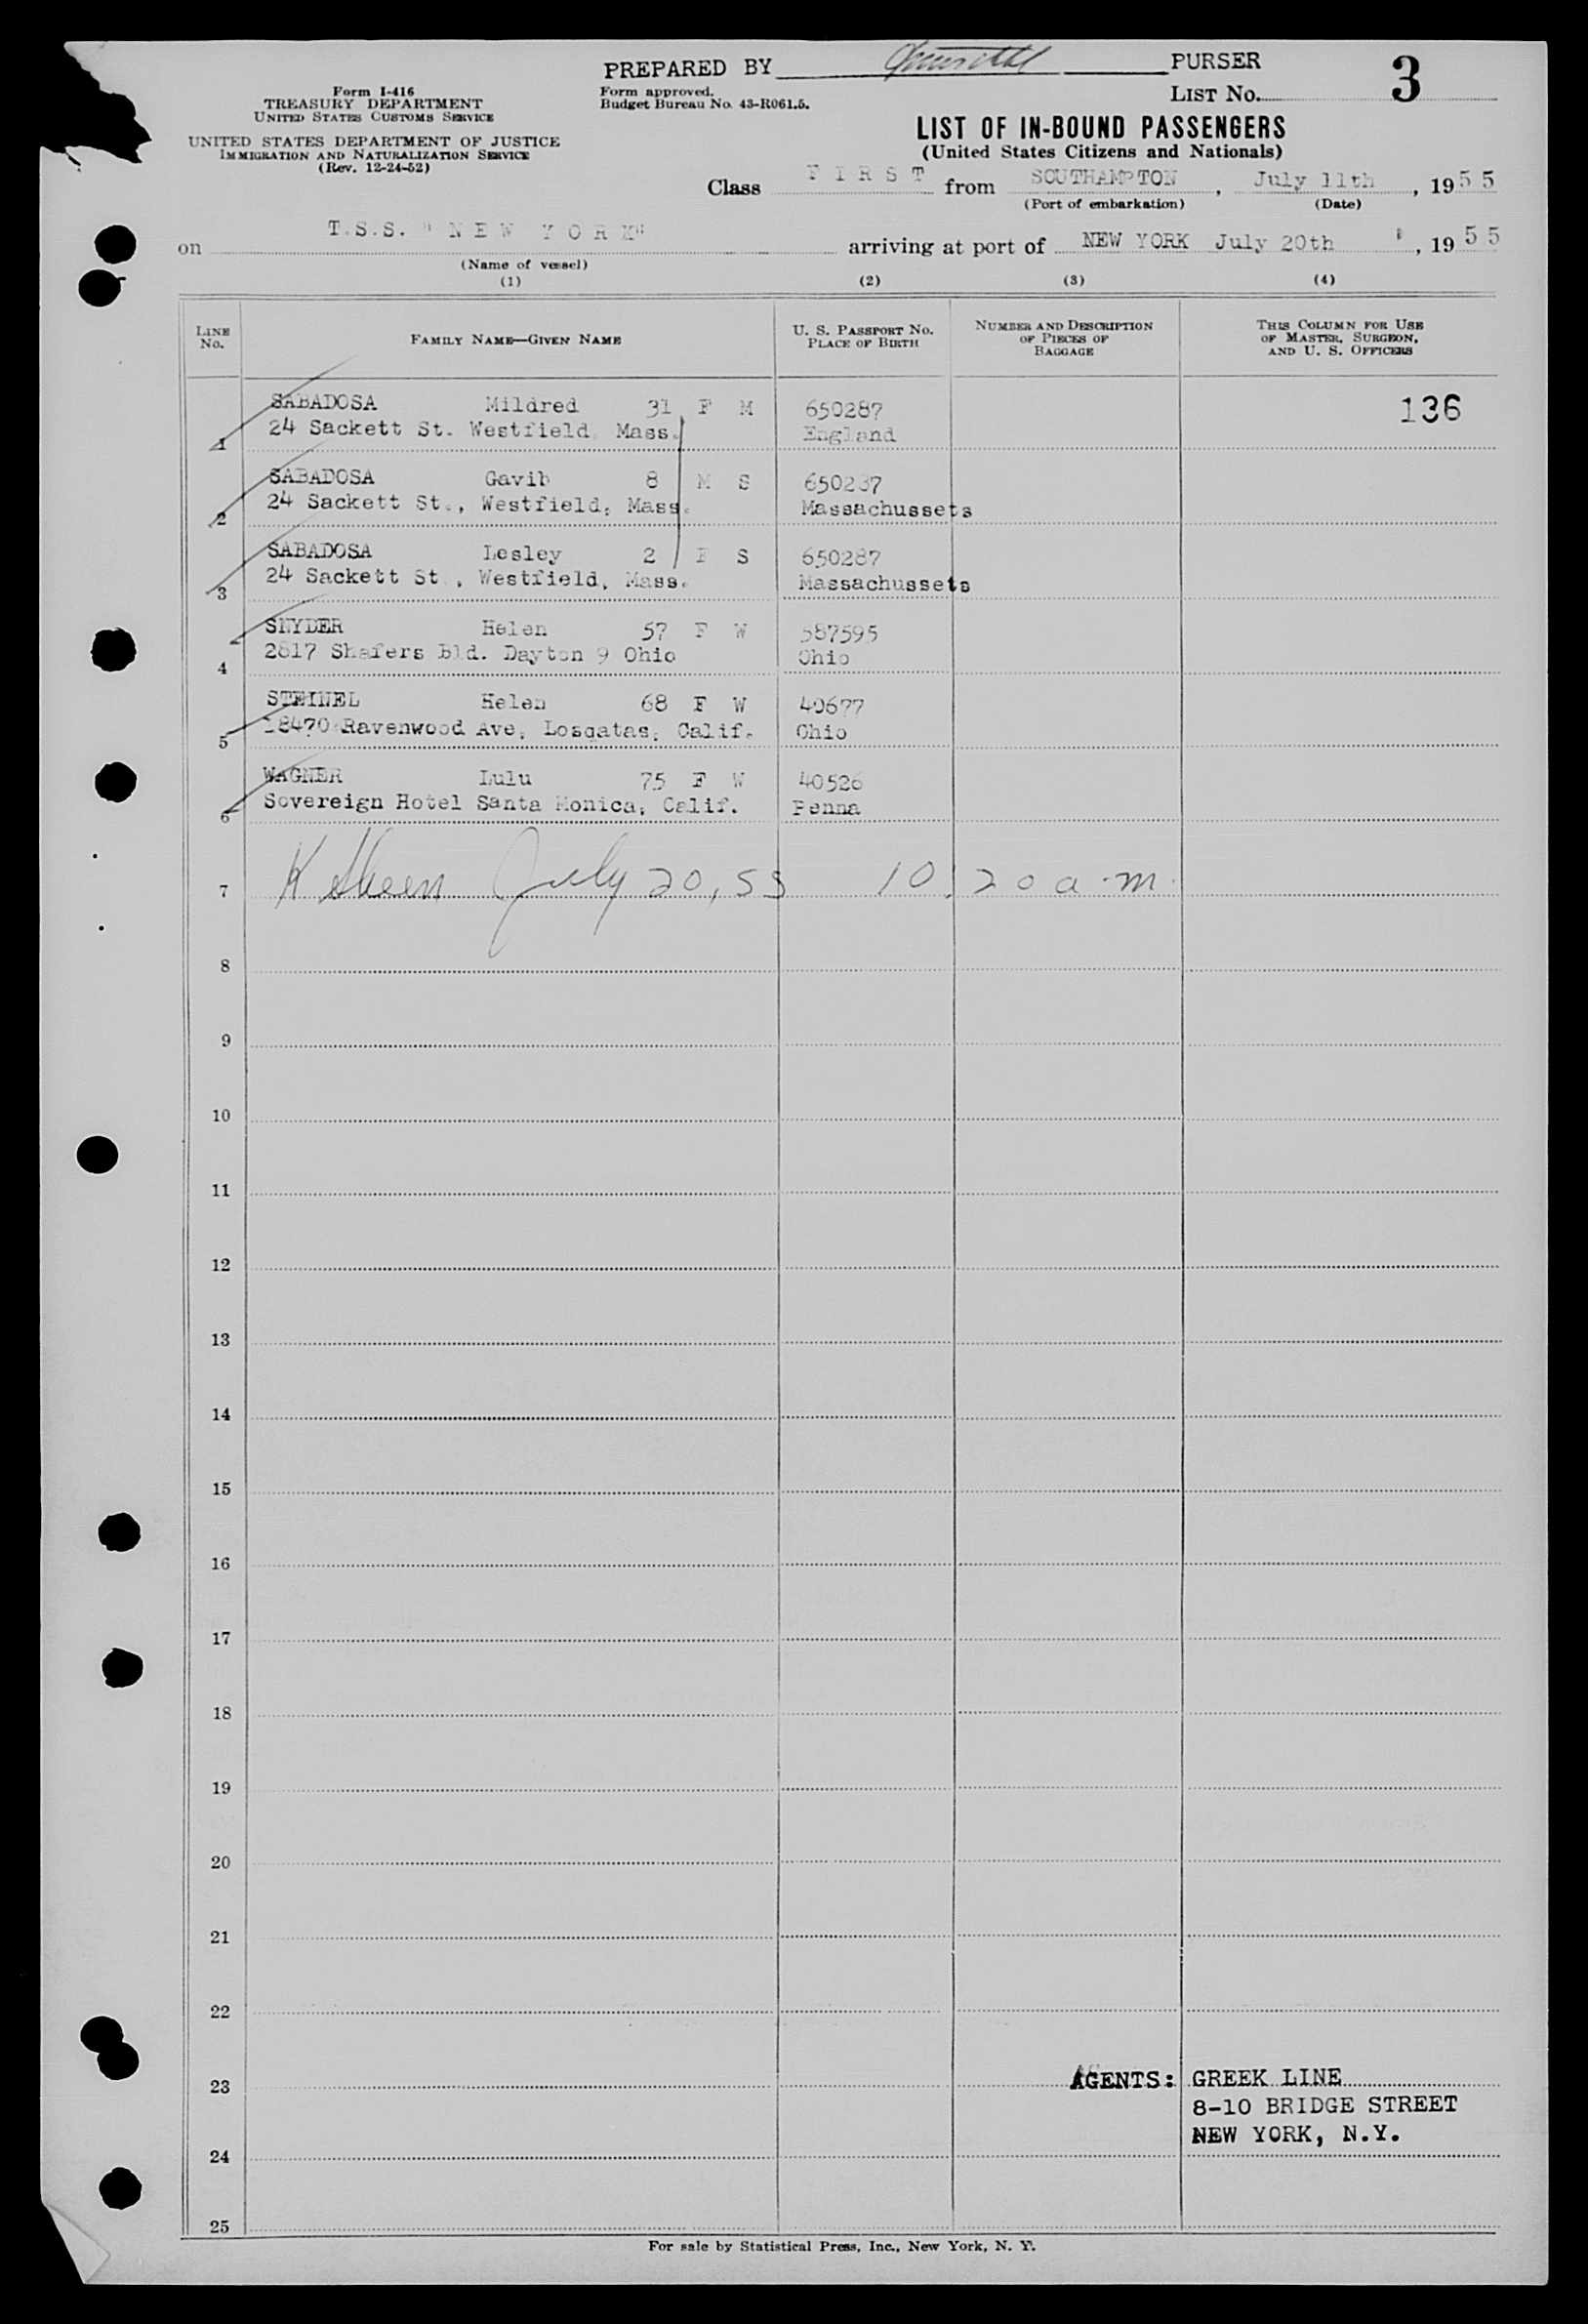 PREPARED BY PURSER
3
Form I-416
TREASURY DEPARTMENT
UNITED STATES CUSTOMS SERVICE
Form approved.
Budget Bureau No. 43-R061.5.
LIST No.
UNITED STATES DEPARTMENT OF JUSTICE
IMMIGRATION AND NATURALIZATION SERVICE
(Rev. 12-24-52)
LIST OF IN-BOUND PASSENGERS
(United States Citizens and Nationals)
Class F I R S T from SOUTHAMPTON, July 11th, 1955
(Port of embarkation) (Date)
on T.S.S. " N E W Y O R K" arriving at port of NEW YORK July 20th, 1955
(Name of vessel)
(1) (2) (3) (4)
LINE No. FAMILY NAME—GIVEN NAME U. S. PASSPORT No. PLACE OF BIRTH NUMBER AND DESCRIPTION OF PIECES OF BAGGAGE THIS COLUMN FOR USE OF MASTER, SURGEON, AND U. S. OFFICERS
SABADOSA Mildred 31 F M 650287 136
1 24 Sackett St. Westfield, Mass. England
SABADOSA 8 M S 650287
2 24 Sackett St., Westfield, Mass. Massachussets
SABADOSA Lesley 2 F S 650287
3 24 Sackett St., Westfield, Mass. Massachussets
SNYDER Helen 57 F W 587595
4 2817 Shafers Bld. Dayton 9 Ohio Ohio
STEINEL Helen 68 F W 40677
5 18470 Ravenwood Ave, Losgatas, Calif. Ohio
WAGNER Lulu 75 F W 40526
6 Sovereign Hotel Santa Monica, Calif. Penna
7 July 20, 55 10.20 a.m.
8
9
10
11
12
13
14
15
16
17
18
19
20
21
22
23 AGENTS: GREEK LINE
8-10 BRIDGE STREET
NEW YORK, N.Y.
24
25
For sale by Statistical Press, Inc., New York, N. Y.